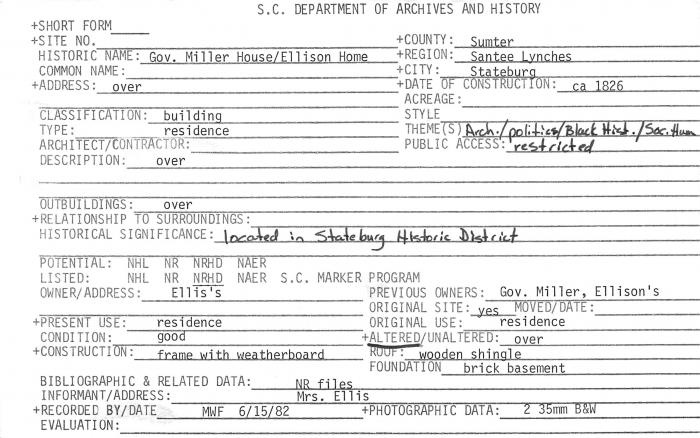 S.C. DEPARTMENT OF ARCHIVES AND HISTORY
+SHORT FORM
+SITE NO.
HISTORIC NAME: Gov. Miller House/Ellison Home
COMMON NAME:
+ADDRESS: over
+COUNTY: Sumter
+REGION: Santee Lynches
+CITY: Stateburg
+DATE OF CONSTRUCTION: ca 1826
ACREAGE:
CLASSIFICATION: building
TYPE: residence
ARCHITECT/CONTRACTOR:
DESCRIPTION: over
STYLE
THEME(S) Arch./politics/Black Hist./Soc. Hum
PUBLIC ACCESS: restricted
OUTBUILDINGS: over
+RELATIONSHIP TO SURROUNDINGS:
HISTORICAL SIGNIFICANCE: located in Stateburg Historic District
POTENTIAL: NHL NR NRHD NAER
LISTED: NHL NR NRHD NAER S.C. MARKER PROGRAM
OWNER/ADDRESS: Ellis's
PREVIOUS OWNERS: Gov. Miller, Ellison's
ORIGINAL SITE: yes MOVED/DATE:
+PRESENT USE: residence
ORIGINAL USE: residence
CONDITION: good
+ALTERED/UNALTERED: over
+CONSTRUCTION: frame with weatherboard
ROOF: wooden shingle
FOUNDATION brick basement
BIBLIOGRAPHIC & RELATED DATA: NR files
INFORMANT/ADDRESS: Mrs. Ellis
+RECORDED BY/DATE MWF 6/15/82
+PHOTOGRAPHIC DATA: 2 35mm B&W
EVALUATION: